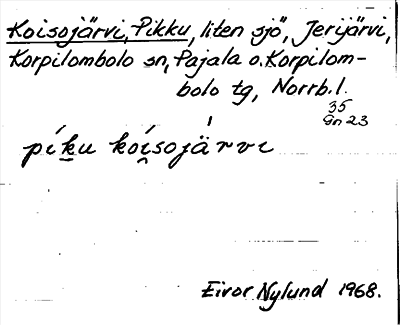 Koisojärvi, Pikku, liten sjö, Jerijärvi,
Korpilombolo sn, Pajala o. Korpilom-
bolo tg, Norrb. l.
35
Gn 23
píḵu koí̯sojärvi
Eivor Nylund 1968.